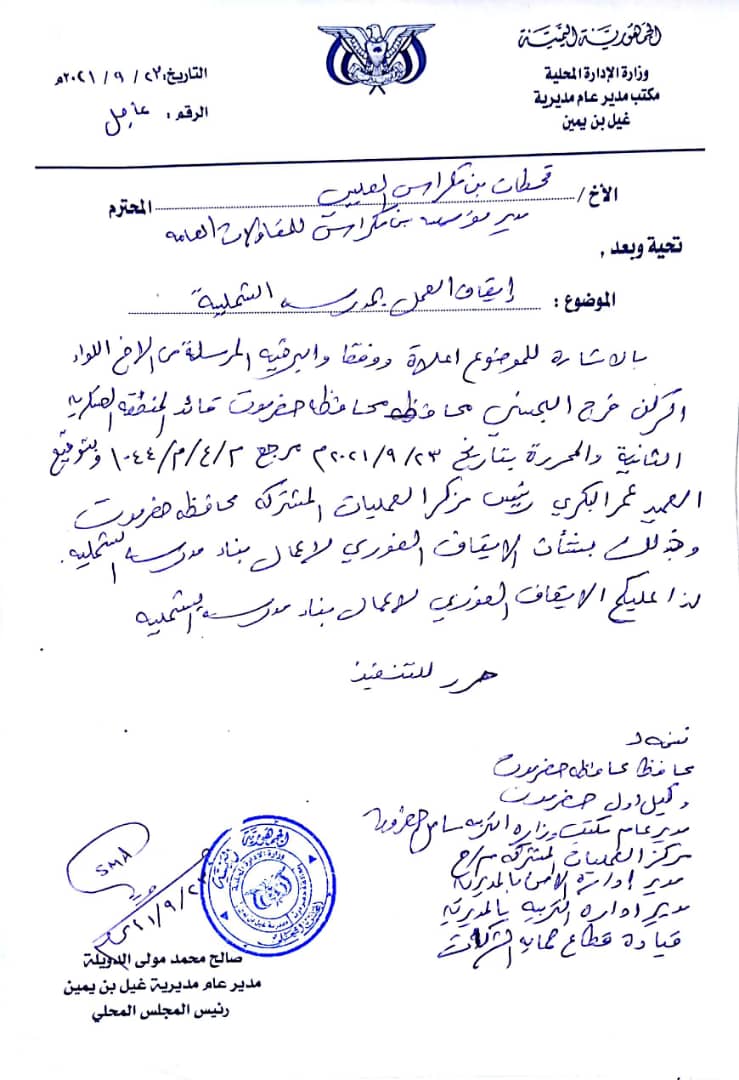 الجمهورية اليمنية
وزارة الإدارة المحلية
مكتب مدير عام مديرية
غيل بن يمين
التاريخ: ٢٣ / ٩ / ٢٠٢١م
الرقم : عاجل
الأخ / قحطان بن مكراس العليي المحترم
مدير مؤسسه بن مكراس للمقاولات العامه
تحية وبعد ,
الموضوع : إيقاف العمل بمدرسه الشملية
بالاشاره للموضوع اعلاة ووفقا والبرقيه المرسلة من الاخ اللواء
الركن فرج البحسني محافظ محافظه حضرموت قائد المنطقه العسكريه
الثانية والمحررة بتاريخ ٢٣/٩/٢٠٢١م برجع ٢/٤/م/١٠٤٤ وبتوقيع
العميد عمر البكري رئيس مركز العمليات المشتركه محافظه حضرموت
وذلك بشأن الايقاف الفوري لاعمال بناء مدرسه الشمليه.
لذا عليكم الايقاف الفوري لاعمال بناء مدرسه الشمليه
حرر للتنفيذ
نسخه لـ
محافظ محافظه حضرموت
وكيل اول حضرموت
مدير عام مكتب وزاره التربيه ساحل حضرموت
مركز العمليات المشتركه م/ح
مدير اداره الامن بالمديرية
مدير اداره التربيه بالمديرية
قيادة قطاع حمايه الشركات
SMA
صالح محمد مولى الدويلة
مدير عام مديرية غيل بن يمين
رئيس المجلس المحلي